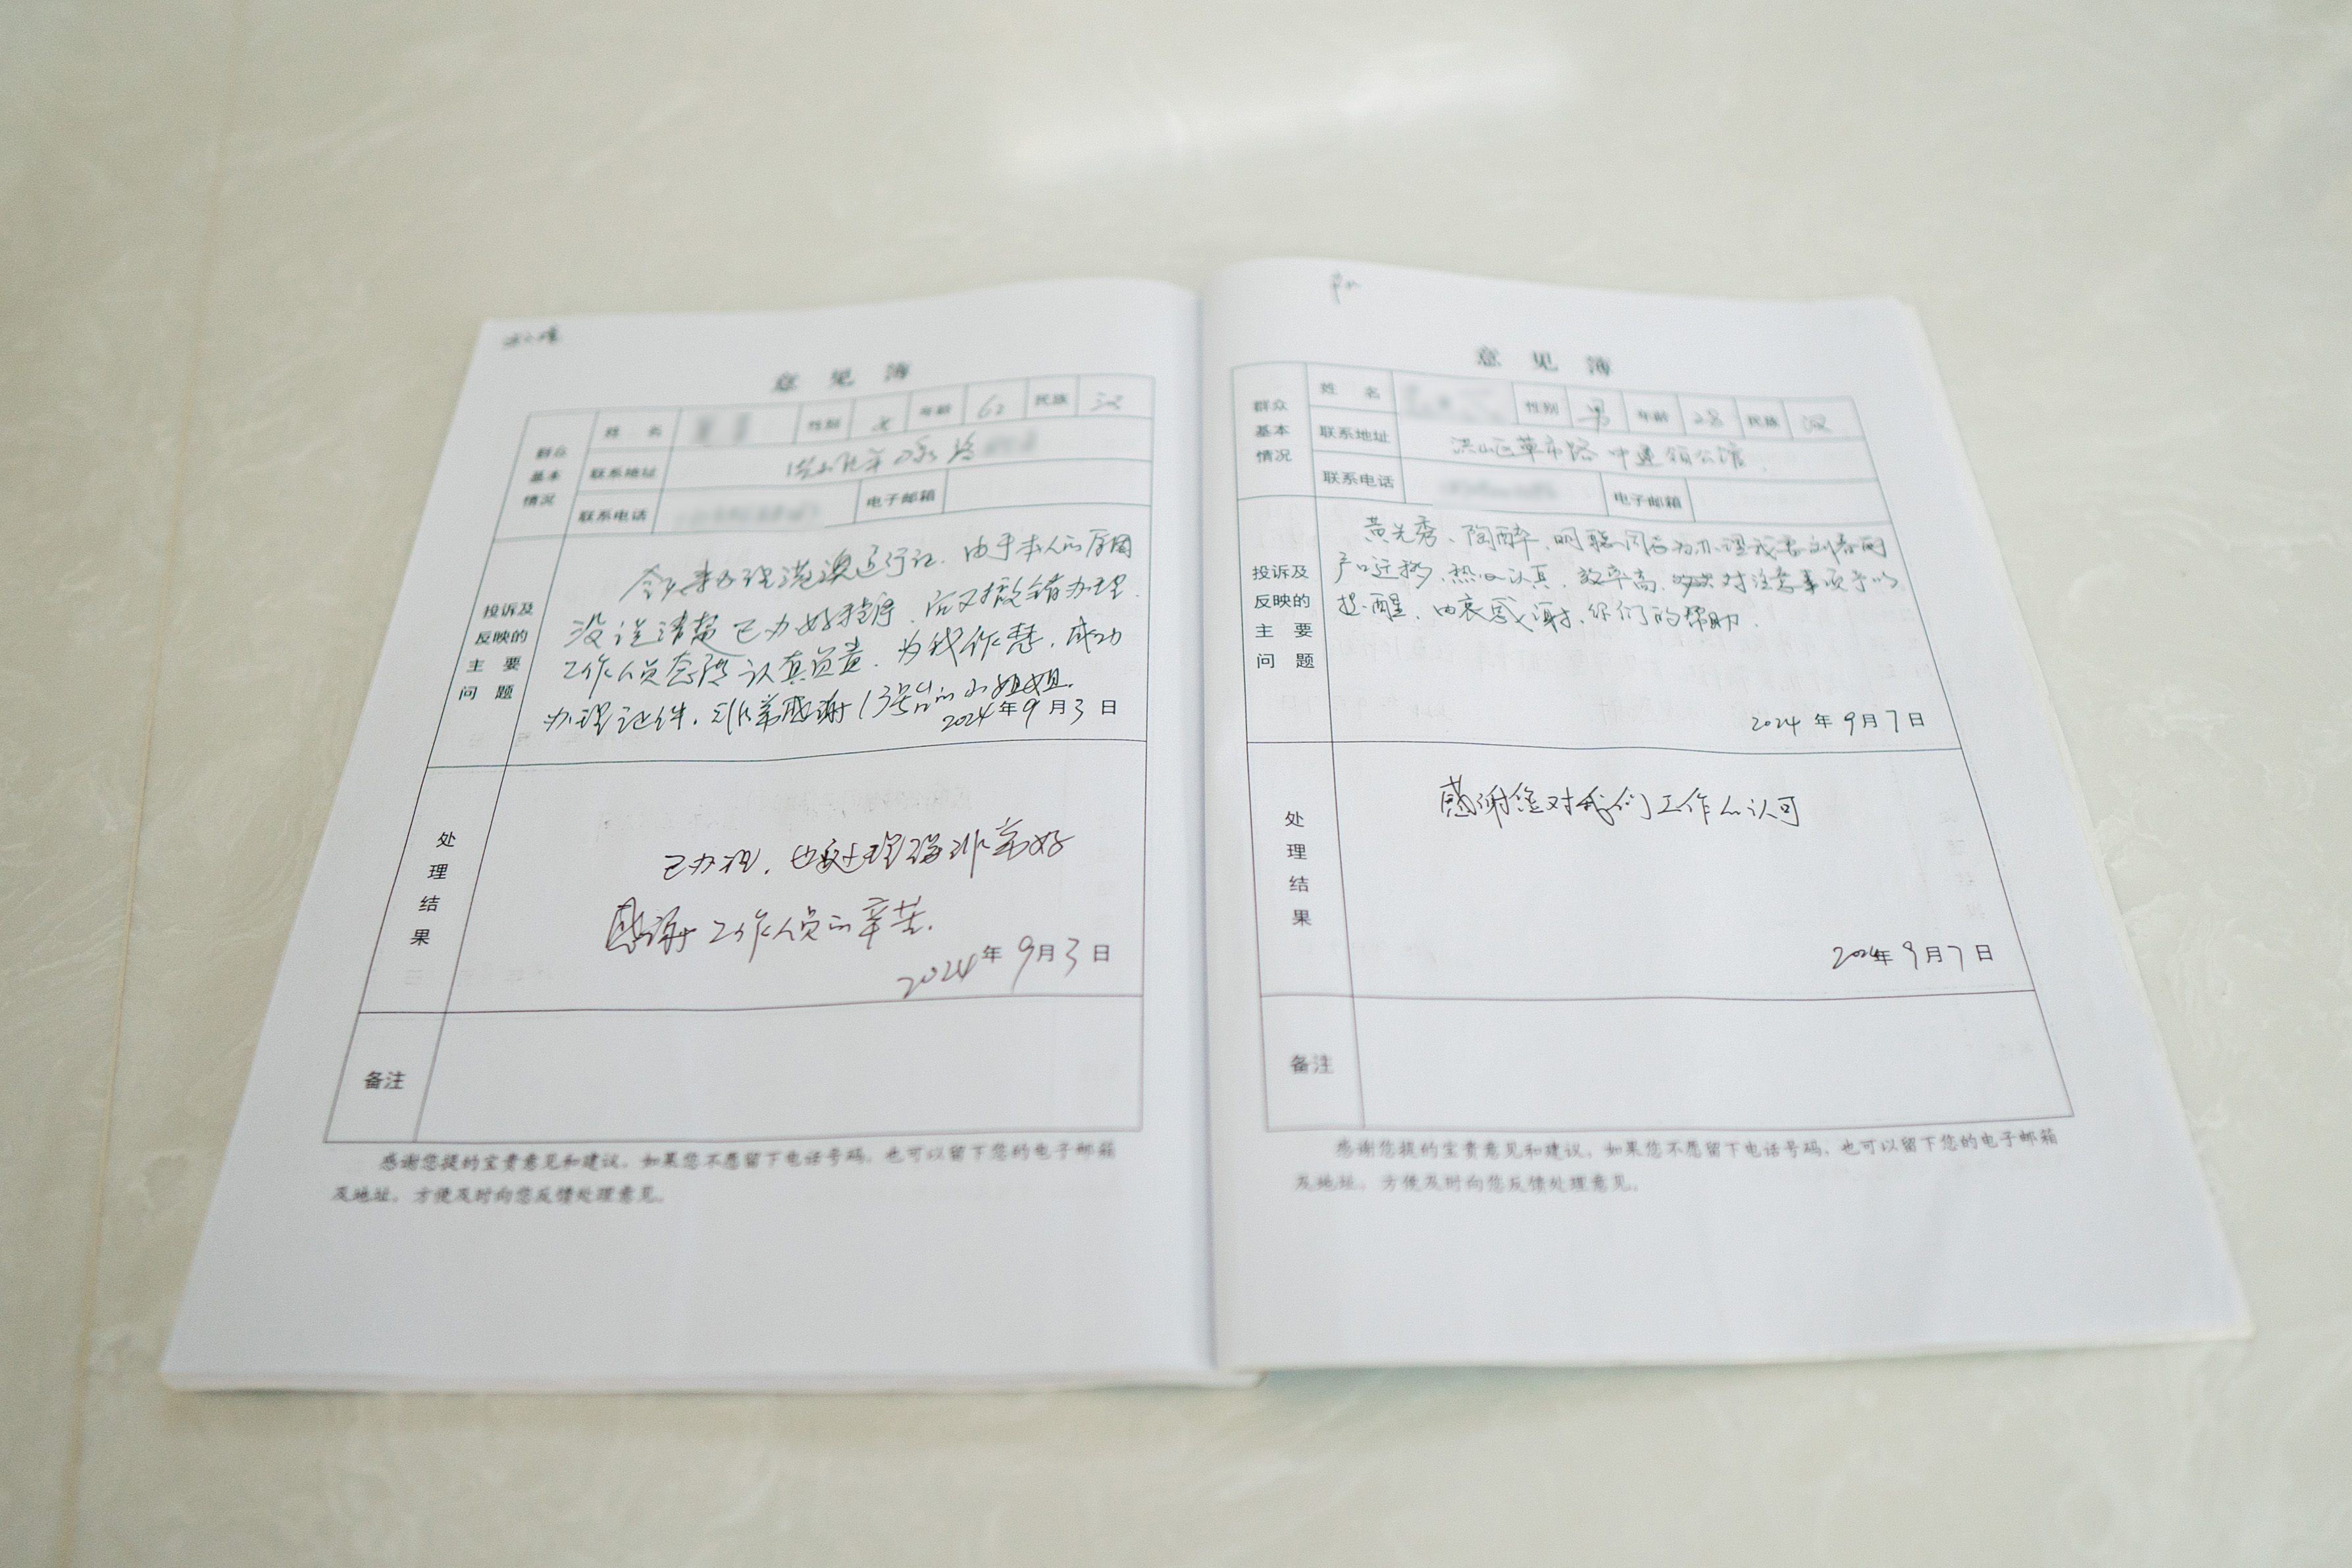 意见簿
群众基本情况
姓名
性别
年龄 62 民族 汉
联系地址
联系电话
电子邮箱
投诉及反映的主要问题
今天来办理港澳通行证，由于本人的原因
没说清楚已办好程序，后又搞错办理，
工作人员态度认真负责，为我作想，成功
办理证件，非常感谢13号台的小姐姐。
2024年9月3日
处理结果
已办理，也处理得非常好
感谢工作人员的辛苦.
2024年9月3日
备注
感谢您提的宝贵意见和建议，如果您不愿留下电话号码，也可以留下您的电子邮箱
及地址，方便及时向您反馈处理意见。
意见簿
群众基本情况
姓名
性别 男 年龄 28 民族 汉
联系地址 洪山区草市路 中建领公馆
联系电话
电子邮箱
投诉及反映的主要问题
黄先秀、陶醉、明聪同志为办理我
户口迁移，热心认真，效率高，对注意事项予以
提醒，由衷感谢你们的帮助.
2024年9月7日
处理结果
感谢您对我们工作的认可
2024年9月7日
备注
感谢您提的宝贵意见和建议，如果您不愿留下电话号码，也可以留下您的电子邮箱
及地址，方便及时向您反馈处理意见。